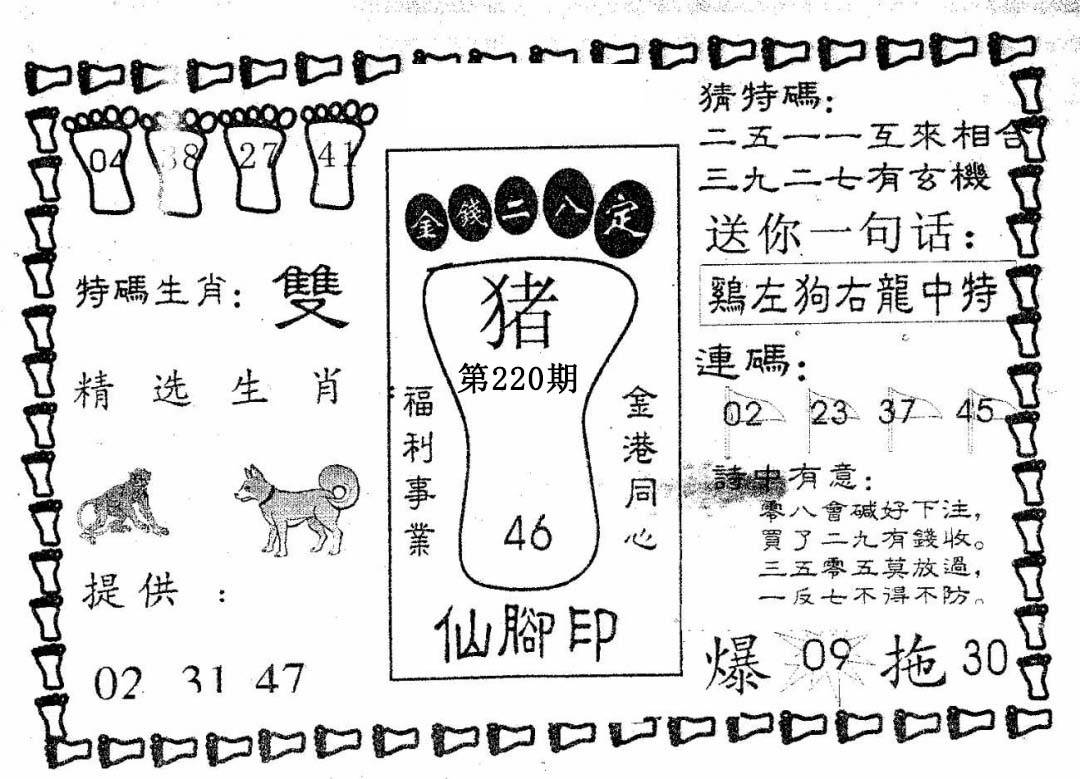 04 38 27 41
特碼生肖：雙
精选生肖
提供：
02 31 47
金錢二八定
猪
第220期
福利事業
金港同心
46
仙腳印
猜特碼：
二五一一互來相合
三九二七有玄機
送你一句话：
鷄左狗右龍中特
連碼：
02 23 37 45
詩中有意：
零八會碱好下注，
買了二九有錢收。
三五零五莫放過，
一反七不得不防。
爆 09 拖 30